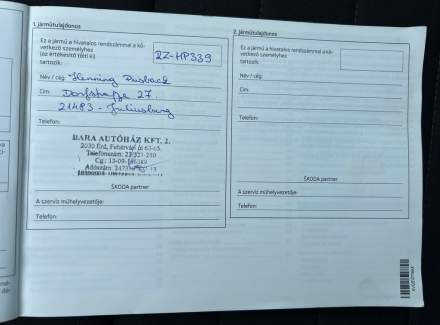 1. járműtulajdonos
Ez a jármű a hivatalos rendszámmal a kö-
vetkező személyhez
(az értékesítő tölti ki)
tartozik:
RZ-HP339
Név / cég: Henning Pusback
Cím: Dorfstraße 27.
21483 - Juliusburg
Telefon:
BARA AUTÓHÁZ KFT. 2.
2030 Érd, Fehérvári út 63-65.
Telefonszám: 23/521-250
Cg.: 13-09-
Adószám:
ŠKODA partner
A szerviz műhelyvezetője:
Telefon:
2. járműtulajdonos
Ez a jármű a hivatalos rendszámmal a kö-
vetkező személyhez
tartozik:
Név / cég:
Cím:
Telefon:
ŠKODA partner
A szerviz műhelyvezetője:
Telefon: